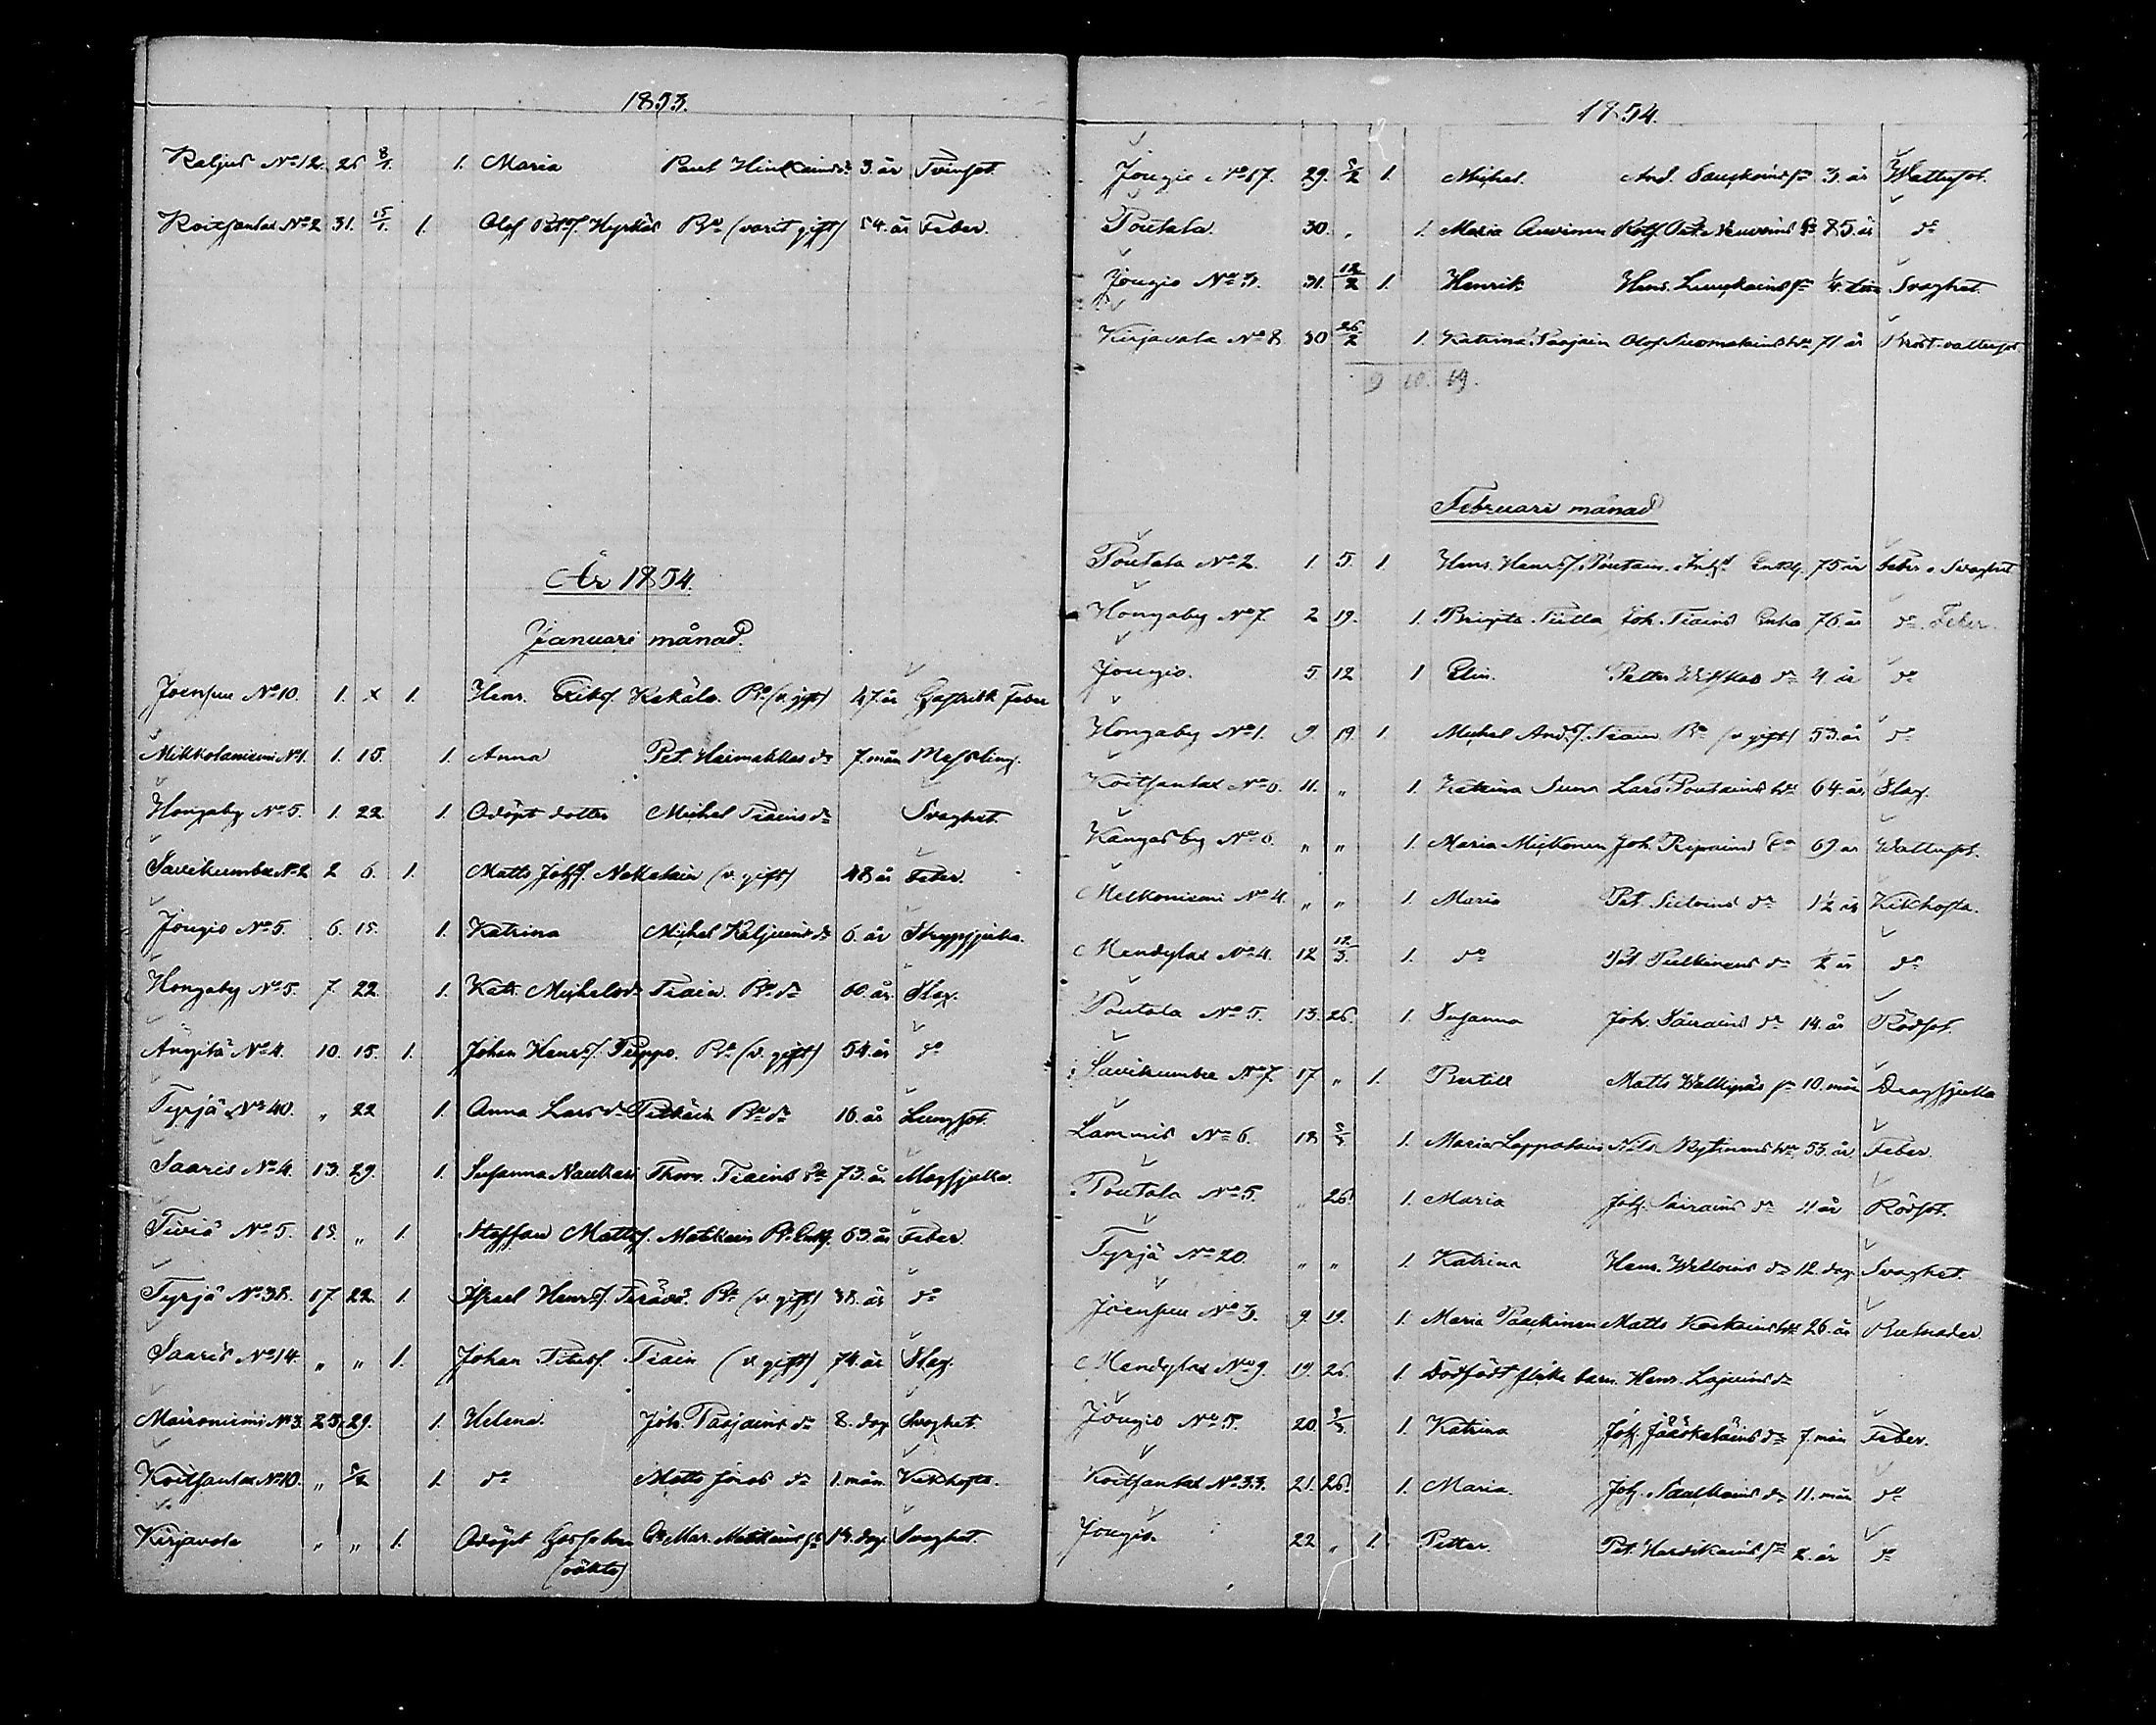 1853.
Raljus No 12. 26 8/1. 1. Maria Paul Hinkains dr 3. år Tvinsot.
Koitsanlax No 2 31. 15/1. 1. Olof Petsf. Hyrkäs Be (varit gift) 54. år Feber.
År 1854.
Januari månad.
Joensuu No 10. 1. x 1. Henr. Eriksf. Kekäle. Be (v. gift) 47. år Gastrisk Feber
Mikkolaniemi No 1. 1. 15. 1. Anna Pet. Haimakkas dr 7. mån Messling.
Hongaby No 5. 1. 22. 1. Odöpt dotter Michel Tiains dr Svaghet.
Savikumbu No 2 2 6. 1. Matts Johsf. (v. gift) 48 år Feber.
Jougio No 5. 6. 15. 1. Katrina Michel dr 6. år Strypsjuka.
Hongaby No 5. 7. 22. 1. Katr. Michelsdr Tiain. Be dr 60. år. Slag.
Ängilä No 4. 10. 15. 1. Johan Henrsf. Peippo. Be (v. gift) 54. år do
Tyrjä No 40. " 22 1. Anna Larsdr Pitkäin Be dr 16. år Lungsot.
Saaris No 4. 13. 29. 1. Susanna Naukari Thom. Tiains 73. år Magsjuka.
Tiviä No 5. 15. " 1. Staffan Mattsf. Matikain Be Enkl. 63. år Feber.
Tyrjä No 38. 17. 22. 1. Israel Henrsf. Terävä. Be (v. gift) 38. år do
Saaris No 14. " " 1. Johan Tiain (v. gift) 74. år Slag.
Mäironiemi No 3. 25. 29. 1. Helena. Joh. Parjains dr 8. dag Svaghet.
Koitsanlax No 10. " 5/2 1. do Matts dr 1. mån. Kikhosta.
Kirjavala " " 1. Odöpt Mar. Matikains 14. dag. Svaghet.
(oäkta)
1854.
Jougio No 17. 29. 5/2 1. Michel. And. sn 3. år Wattusot.
Poutala. 30. " 1. Maria Auvinen 85. år do
Jougio No 3. 31. 12/2 1. Henrik Henr. sn 1/4. Svaghet.
Kirjavala No 8 30 26/2 1. Katrina Parjain Olof Suomalains 71 år Bröst-vattusot.
9 10. 19.
Februari månad
Poutala No 2. 1. 5. 1. Henr. Henrsf. Poutain. Enkl. 75 år Feber o Svaghet
Hongaby No 7. 2 19. 1. Brigita Tiilla Joh. Tiains Enka 76. år do. Feber.
Jougio. 5 12 1 Elin. Petter dr 4. år do
Hongaby No 1. 9. 19. 1. Michel Andsf. Tiain Be (v gift) 53. år do
Koitsanlax No 6. 11. " 1. Katrina Suna Lars Poutains 64. år. Slag.
Kangasby No 6. " " 1. Maria Mickonen Joh. 69. år Wattusot.
Melkoniemi No 4. " " 1. Maria Pet. dr 1 1/2 år Kikhosta.
Mendylax No 4. 12 12/3. 1. do Pet. Pulkinens dr 1/2 år do
Poutala No 5. 13. 26. 1. Susanna Joh. Säirains dr 14. år Rödsot.
Savikumbu No 7. 17 " 1. Bertill Matts sn 10. mån Dragsjuka
Lammis No 6. 18 5/3. 1. Maria Lappalain Nils 55. år. Feber.
Poutala No 5. " 26. 1. Maria Joh. Säirains dr 11 år Rödsot.
Tyrjä No 20. " " 1. Katrina Henr. Wälloins dr 12. dag. Svaghet.
Joensuu No 3. 9. 19. 1. Maria Paackinen Matts 26. år
Mendylax No 9. 19. 26. 1. Dödfödt flicke barn. Henr. dr
Jougio No 5. 20. 5/3. 1. Katrina Joh. Jääskeläins dr 7. mån Feber.
Koitsanlax No 33. 21. 26. 1. Maria. Joh. dr 11. mån do
Jougio. 22 " 1. Petter. Pet. Hardikains sn 2. år do